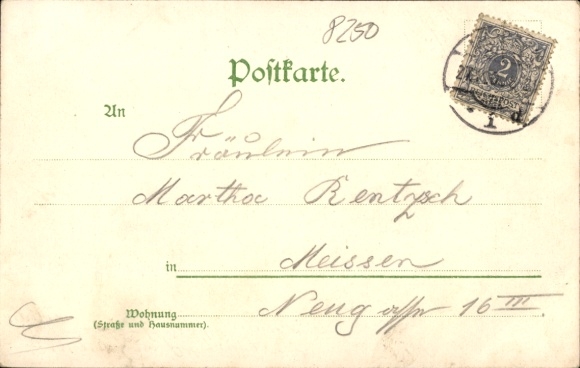 8250
Postkarte.
2
An
Fräulein
Martha Rentzsch
in Meissen
Wohnung Neugasse 16 III
(Straße und Hausnummer).
1 d